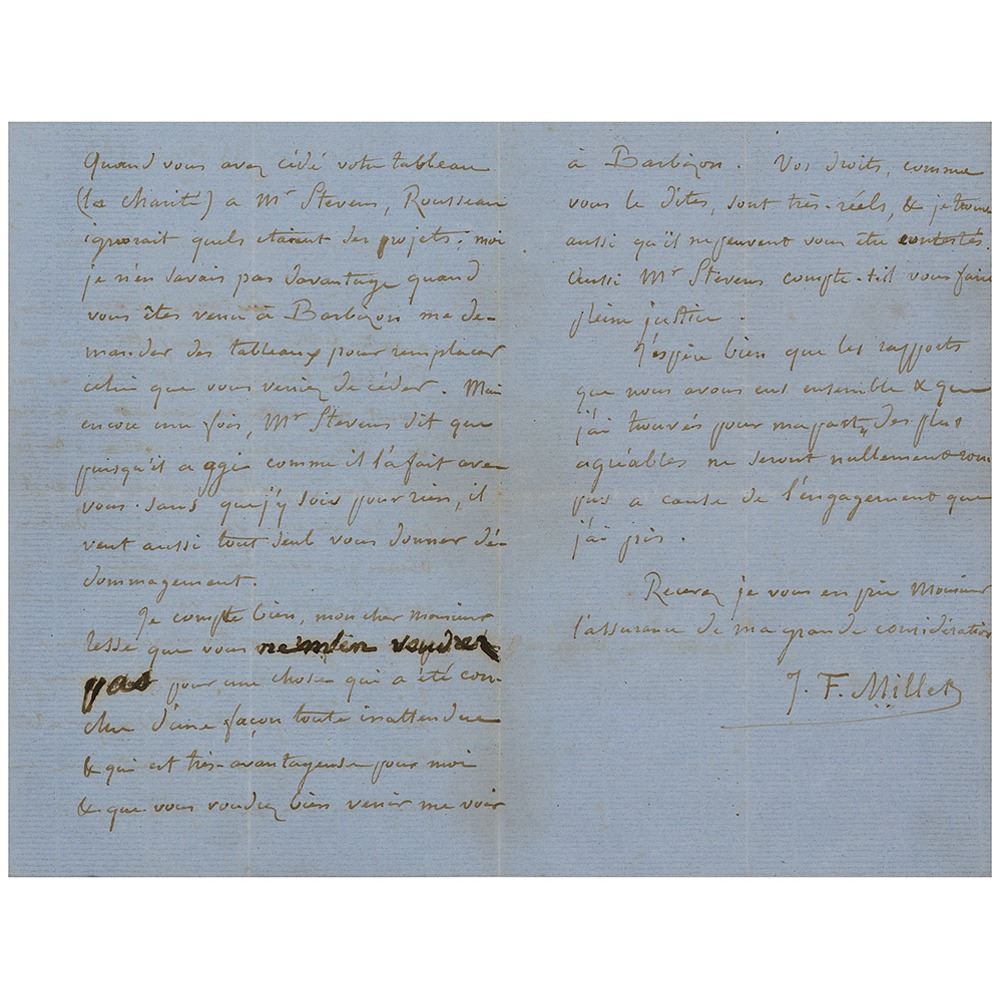 Quand vous avez cédé votre tableau
(la charité) a Mr Stevens, Rousseau
ignorait quels etaient ses projets; moi
je n'en savais pas davantage quand
vous êtes venu à Barbizon me de-
mander des tableaux pour remplacer
celui que vous veniez de céder. Mais
encore une fois, Mr Stevens dit que
puisqu'il a aggi comme il l'a fait avec
vous sans que j'y sois pour rien, il
veut aussi tout seul vous donner dé-
dommagement.
Je compte bien, mon cher monsieur
que vous ne m'en voudrez
pas pour une chose qui a été con-
clue d'une façon toute inattendue
& qui est très-avantageuse pour moi
& que vous voudrez bien venir me voir
à Barbizon. Vos droits, comme
vous le dites, sont très-réels, & je trouve
aussi qu'il ne peuvent vous être contestés.
Aussi Mr Stevens compte-t-il vous faire
pleine justice.
J'espère bien que les rapports
que nous avons eus ensemble & que
j'ai trouvés pour ma part, des plus
agréables ne seront nullement rom
pus a cause de l'engagement que
j'ai pris.
Recevez je vous en prie Monsieur
l'assurance de ma grande considération
J. F. Millet